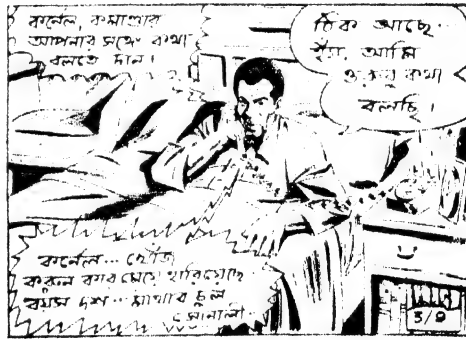 কর্নেল, কমাণ্ডার
আপনার সঙ্গে কথা
বলতে চান।
ঠিক আছে..
হ্যাঁ, আমি
কথা
বলছি।
কর্নেল... খোঁজ
করুন কার মেয়ে হারিয়েছে
বয়স দশ... মাথার চুল
সোনালী..
3/9